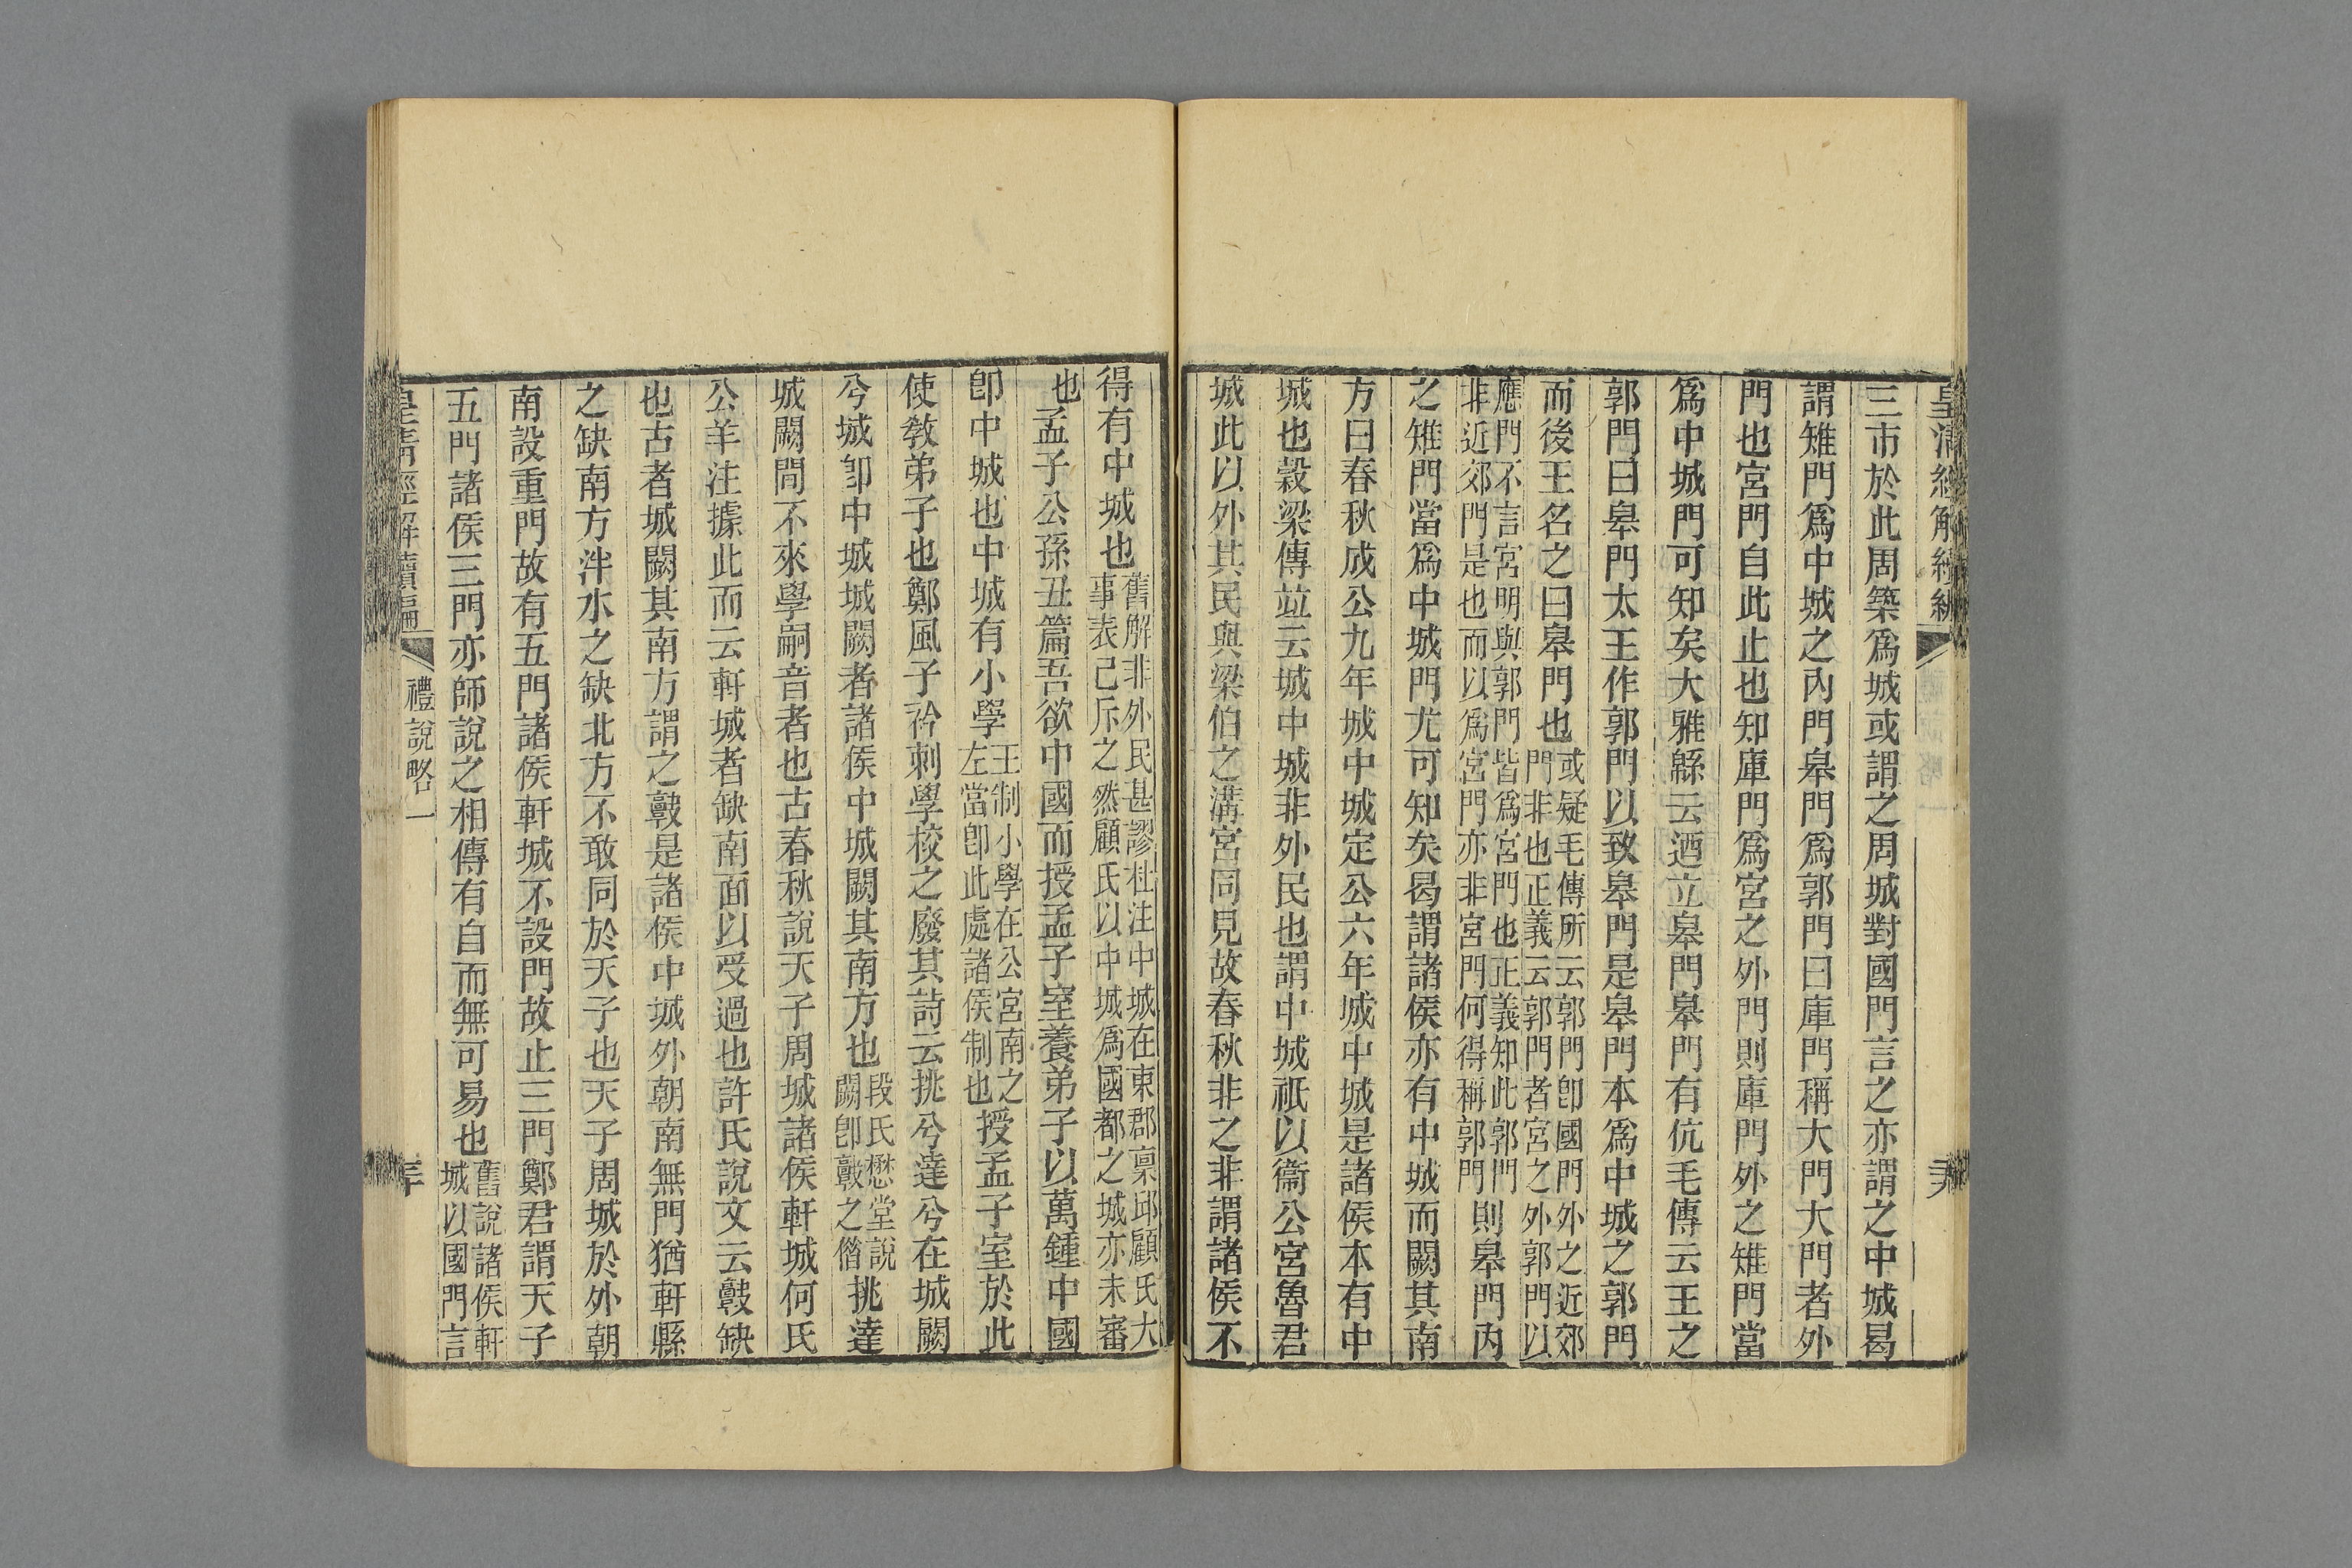 皇清經解續編
三市於此周築爲城或謂之周城對國門言之亦謂之中城曷
謂雉門爲中城之內門皋門爲郭門曰庫門稱大門大門者外
門也宮門自此止也知庫門爲宮之外門則庫門外之雉門當
爲中城門可知矣大雅緜云迺立皋門皋門有伉毛傳云王之
郭門曰皋門太王作郭門以致皋門是皋門本爲中城之郭門
而後王名之曰皋門也
或疑毛傳所云郭門卽國門外之近郊
門非也正義云郭門者宮之外郭門以
應門不言宮明與郭門皆爲宮門也正義知此郭門
非近郊門是也而以爲宮門亦非宮門何得稱郭門
則皋門內
之雉門當爲中城門尤可知矣曷謂諸侯亦有中城而闕其南
方曰春秋成公九年城中城定公六年城中城是諸侯本有中
城也穀梁傳竝云城中城非外民也謂中城祇以衞公宮魯君
城此以外其民與梁伯之溝宮同見故春秋非之非謂諸侯不
得有中城也
舊解非外民甚謬杜注中城在東郡稟邱顧氏大
事表已斥之然顧氏以中城爲國都之城亦未審
也孟子公孫丑篇吾欲中國而授孟子室養弟子以萬鍾中國
卽中城也中城有小學
王制小學在公宮南之
左當卽此處諸侯制也
授孟子室於此
使敎弟子也鄭風子衿刺學校之廢其詩云挑兮達兮在城闕
兮城卽中城城闕者諸侯中城闕其南方也
段氏懋堂說
闕卽𩫏之僭
挑達
城闕間不來學嗣音者也古春秋說天子周城諸侯軒城何氏
公羊注據此而云軒城者缺南面以受過也許氏說文云𩫏缺
也古者城闕其南方謂之𩫏是諸侯中城外朝南無門猶軒縣
之缺南方泮水之缺北方不敢同於天子也天子周城於外朝
南設重門故有五門諸侯軒城不設門故止三門鄭君謂天子
五門諸侯三門亦師說之相傳有自而無可易也
舊說諸侯軒
城以國門言
皇淸經解續編
禮說略一